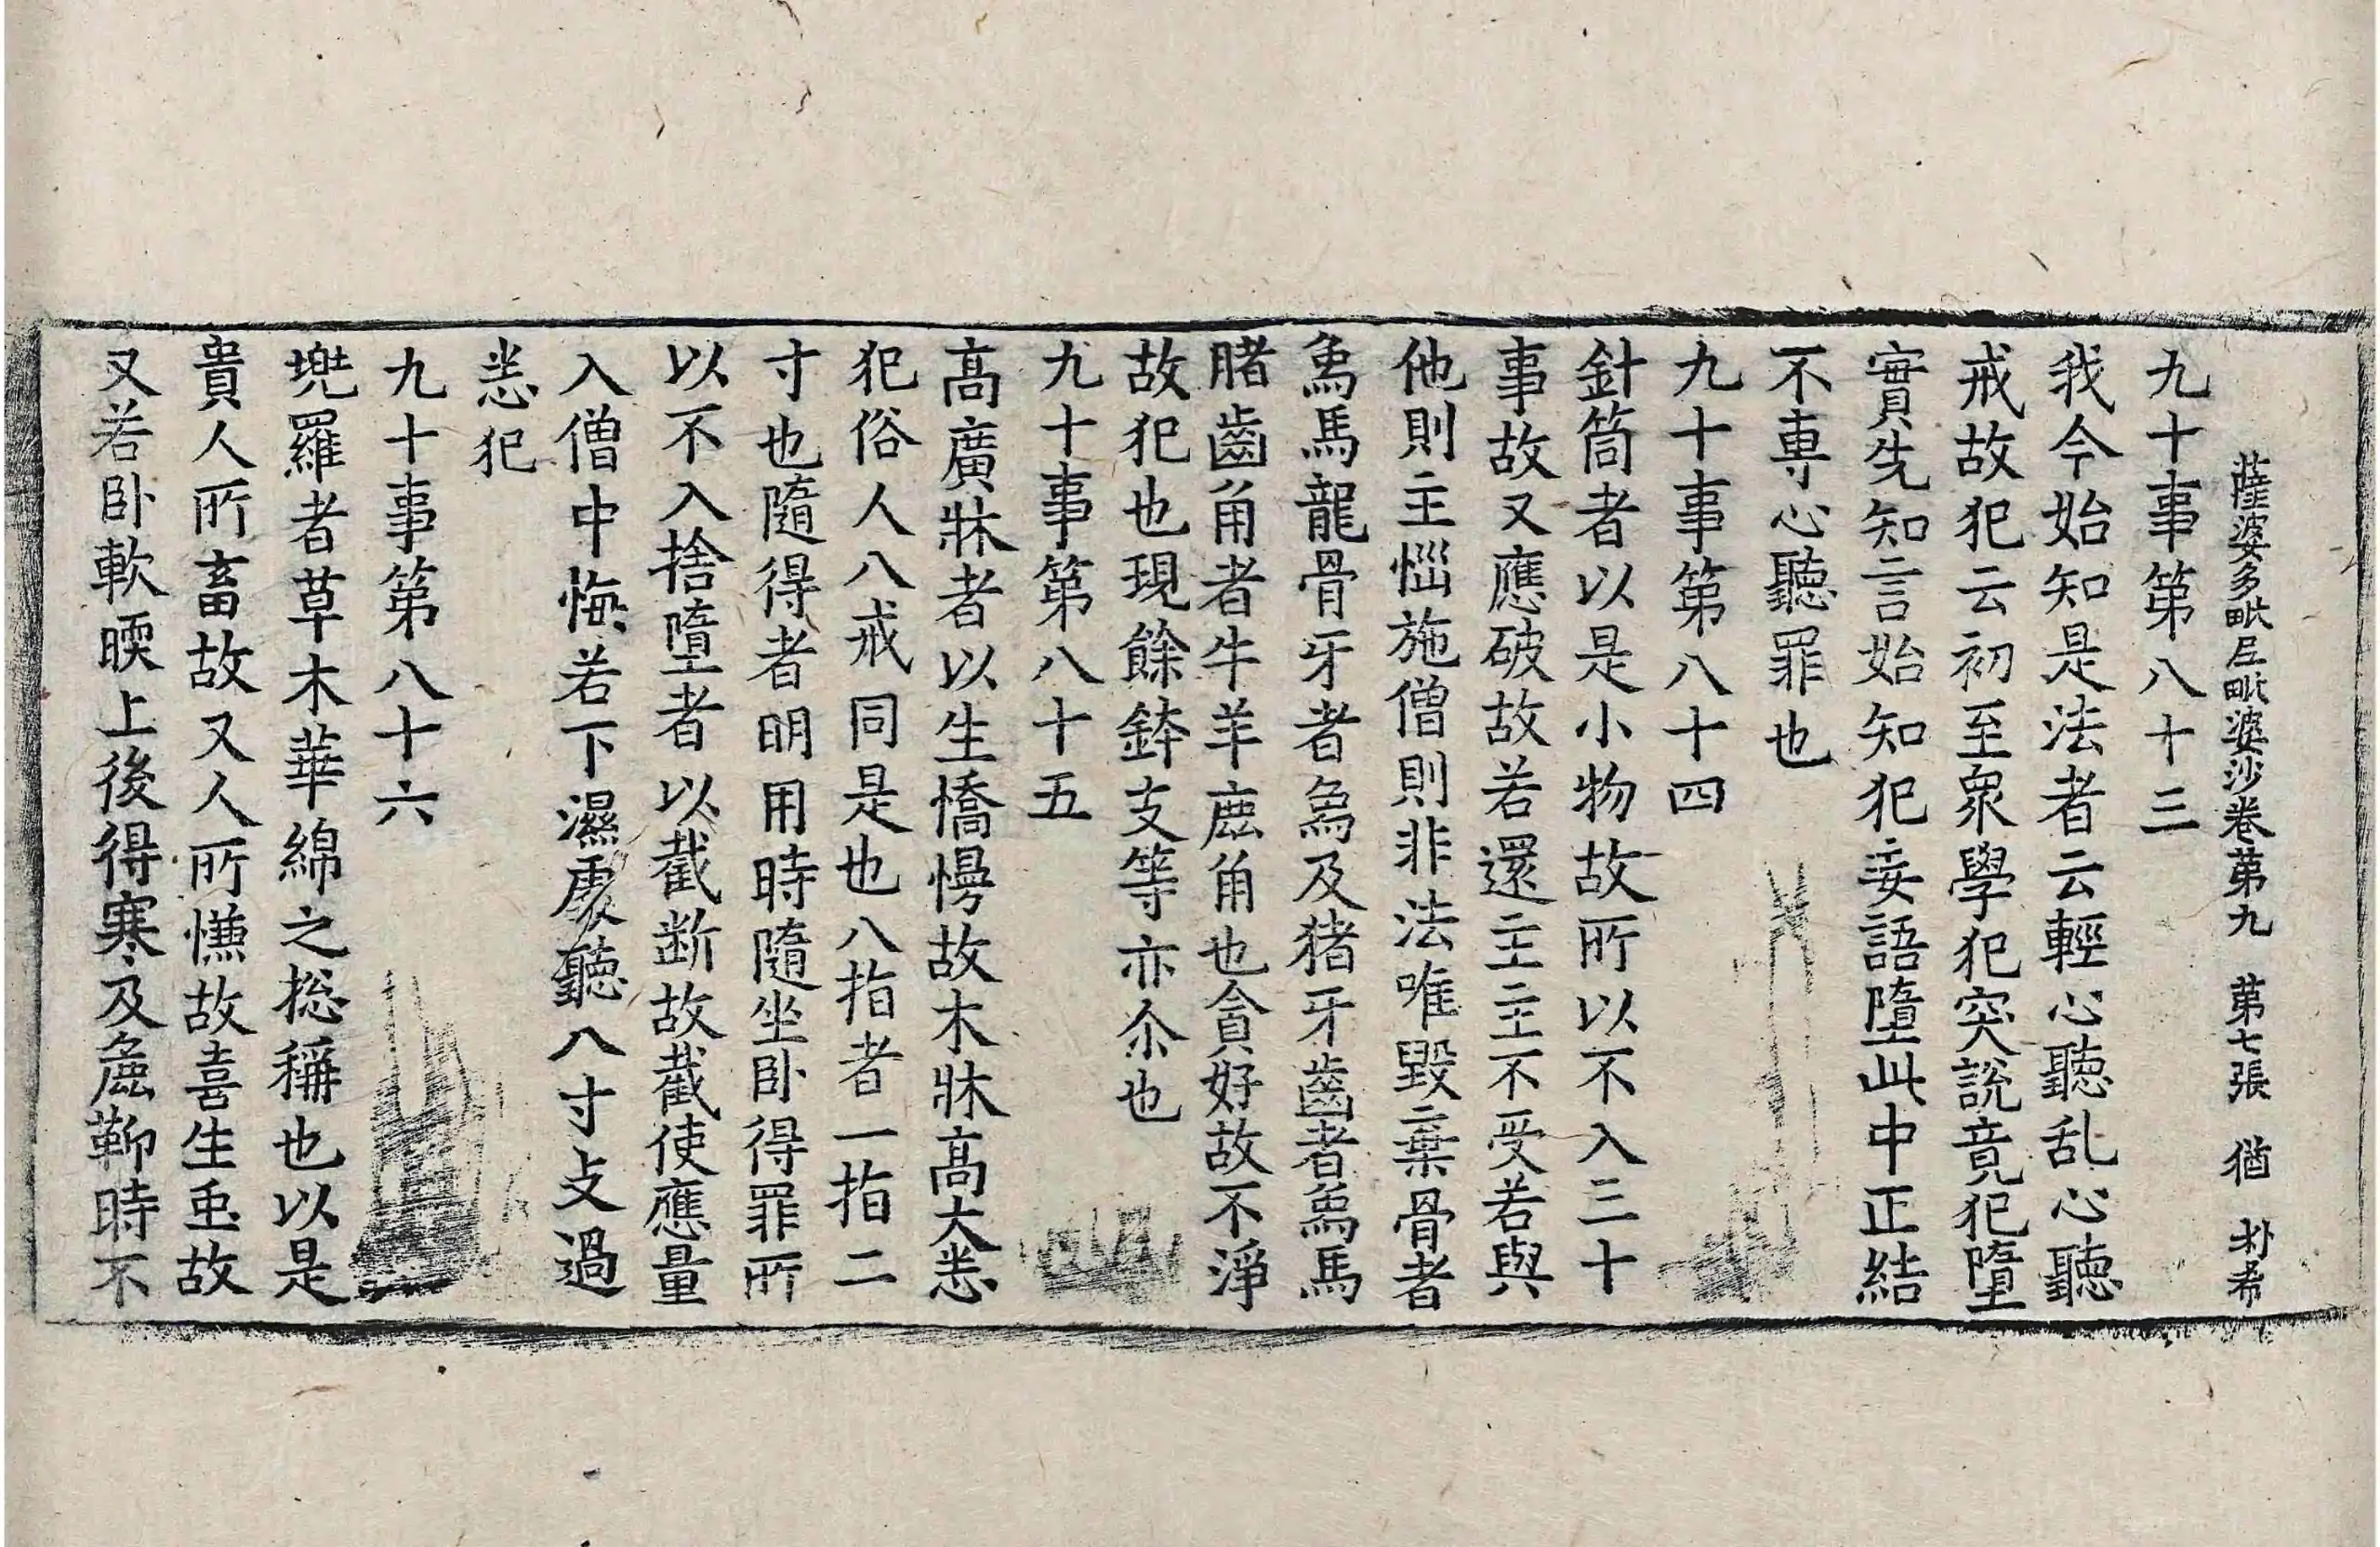 薩婆多毗尼毗婆沙卷第九 第七張 猶 朴希
九十事第八十三
我今始知是法者云輕心聽乱心聽
戒故犯云初至衆學犯突說竟犯墮
實先知言始知犯妄語墮此中正結
不專心聽罪也
九十事第八十四
針筒者以是小物故所以不入三十
事故又應破故若還主主不受若與
他則主惱施僧則非法唯毀棄骨者
象馬龍骨牙者象及猪牙齒者象馬
腤齒角者牛羊鹿角也貪好故不淨
故犯也現餘鉢支等亦尒也
九十事第八十五
高廣牀者以生憍慢故木牀高大悉
犯俗人八戒同是也八指者一指二
寸也隨得者明用時隨坐卧得罪所
以不入捨墮者以截断故截使應量
入僧中悔若下濕處聽八寸支過
悉犯
九十事第八十六
兠羅者草木華綿之捴稱也以是
貴人所畜故又人所慊故喜生䖝故
又若卧軟暖上後得寒及麁鞕時不